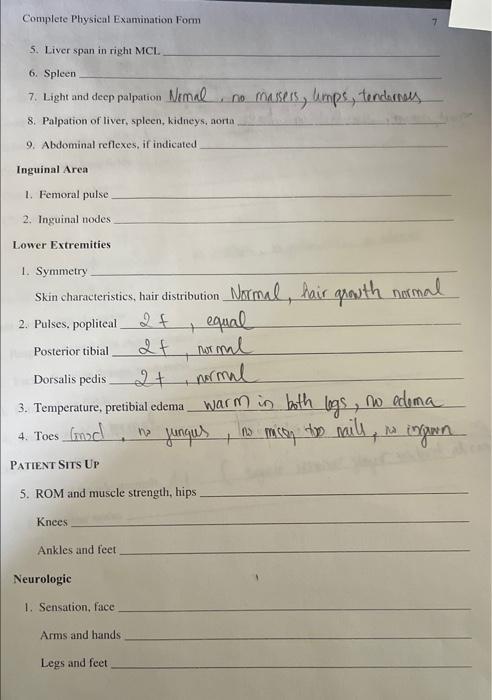 Complete Physical Examination Form 7
5. Liver span in right MCL
6. Spleen
7. Light and deep palpation Normal, no massers, lumps, tenderness
8. Palpation of liver, spleen, kidneys, aorta
9. Abdominal reflexes, if indicated
Inguinal Area
1. Femoral pulse
2. Inguinal nodes
Lower Extremities
1. Symmetry
Skin characteristics, hair distribution Normal, hair growth normal
2. Pulses, popliteal 2+, equal
Posterior tibial 2+, normal
Dorsalis pedis 2+, normal
3. Temperature, pretibial edema warm in both legs, no edema
4. Toes Good, no fungus, no missing toe nail, no ingrown
PATIENT SITS UP
5. ROM and muscle strength, hips
Knees
Ankles and feet
Neurologic
1. Sensation, face
Arms and hands
Legs and feet